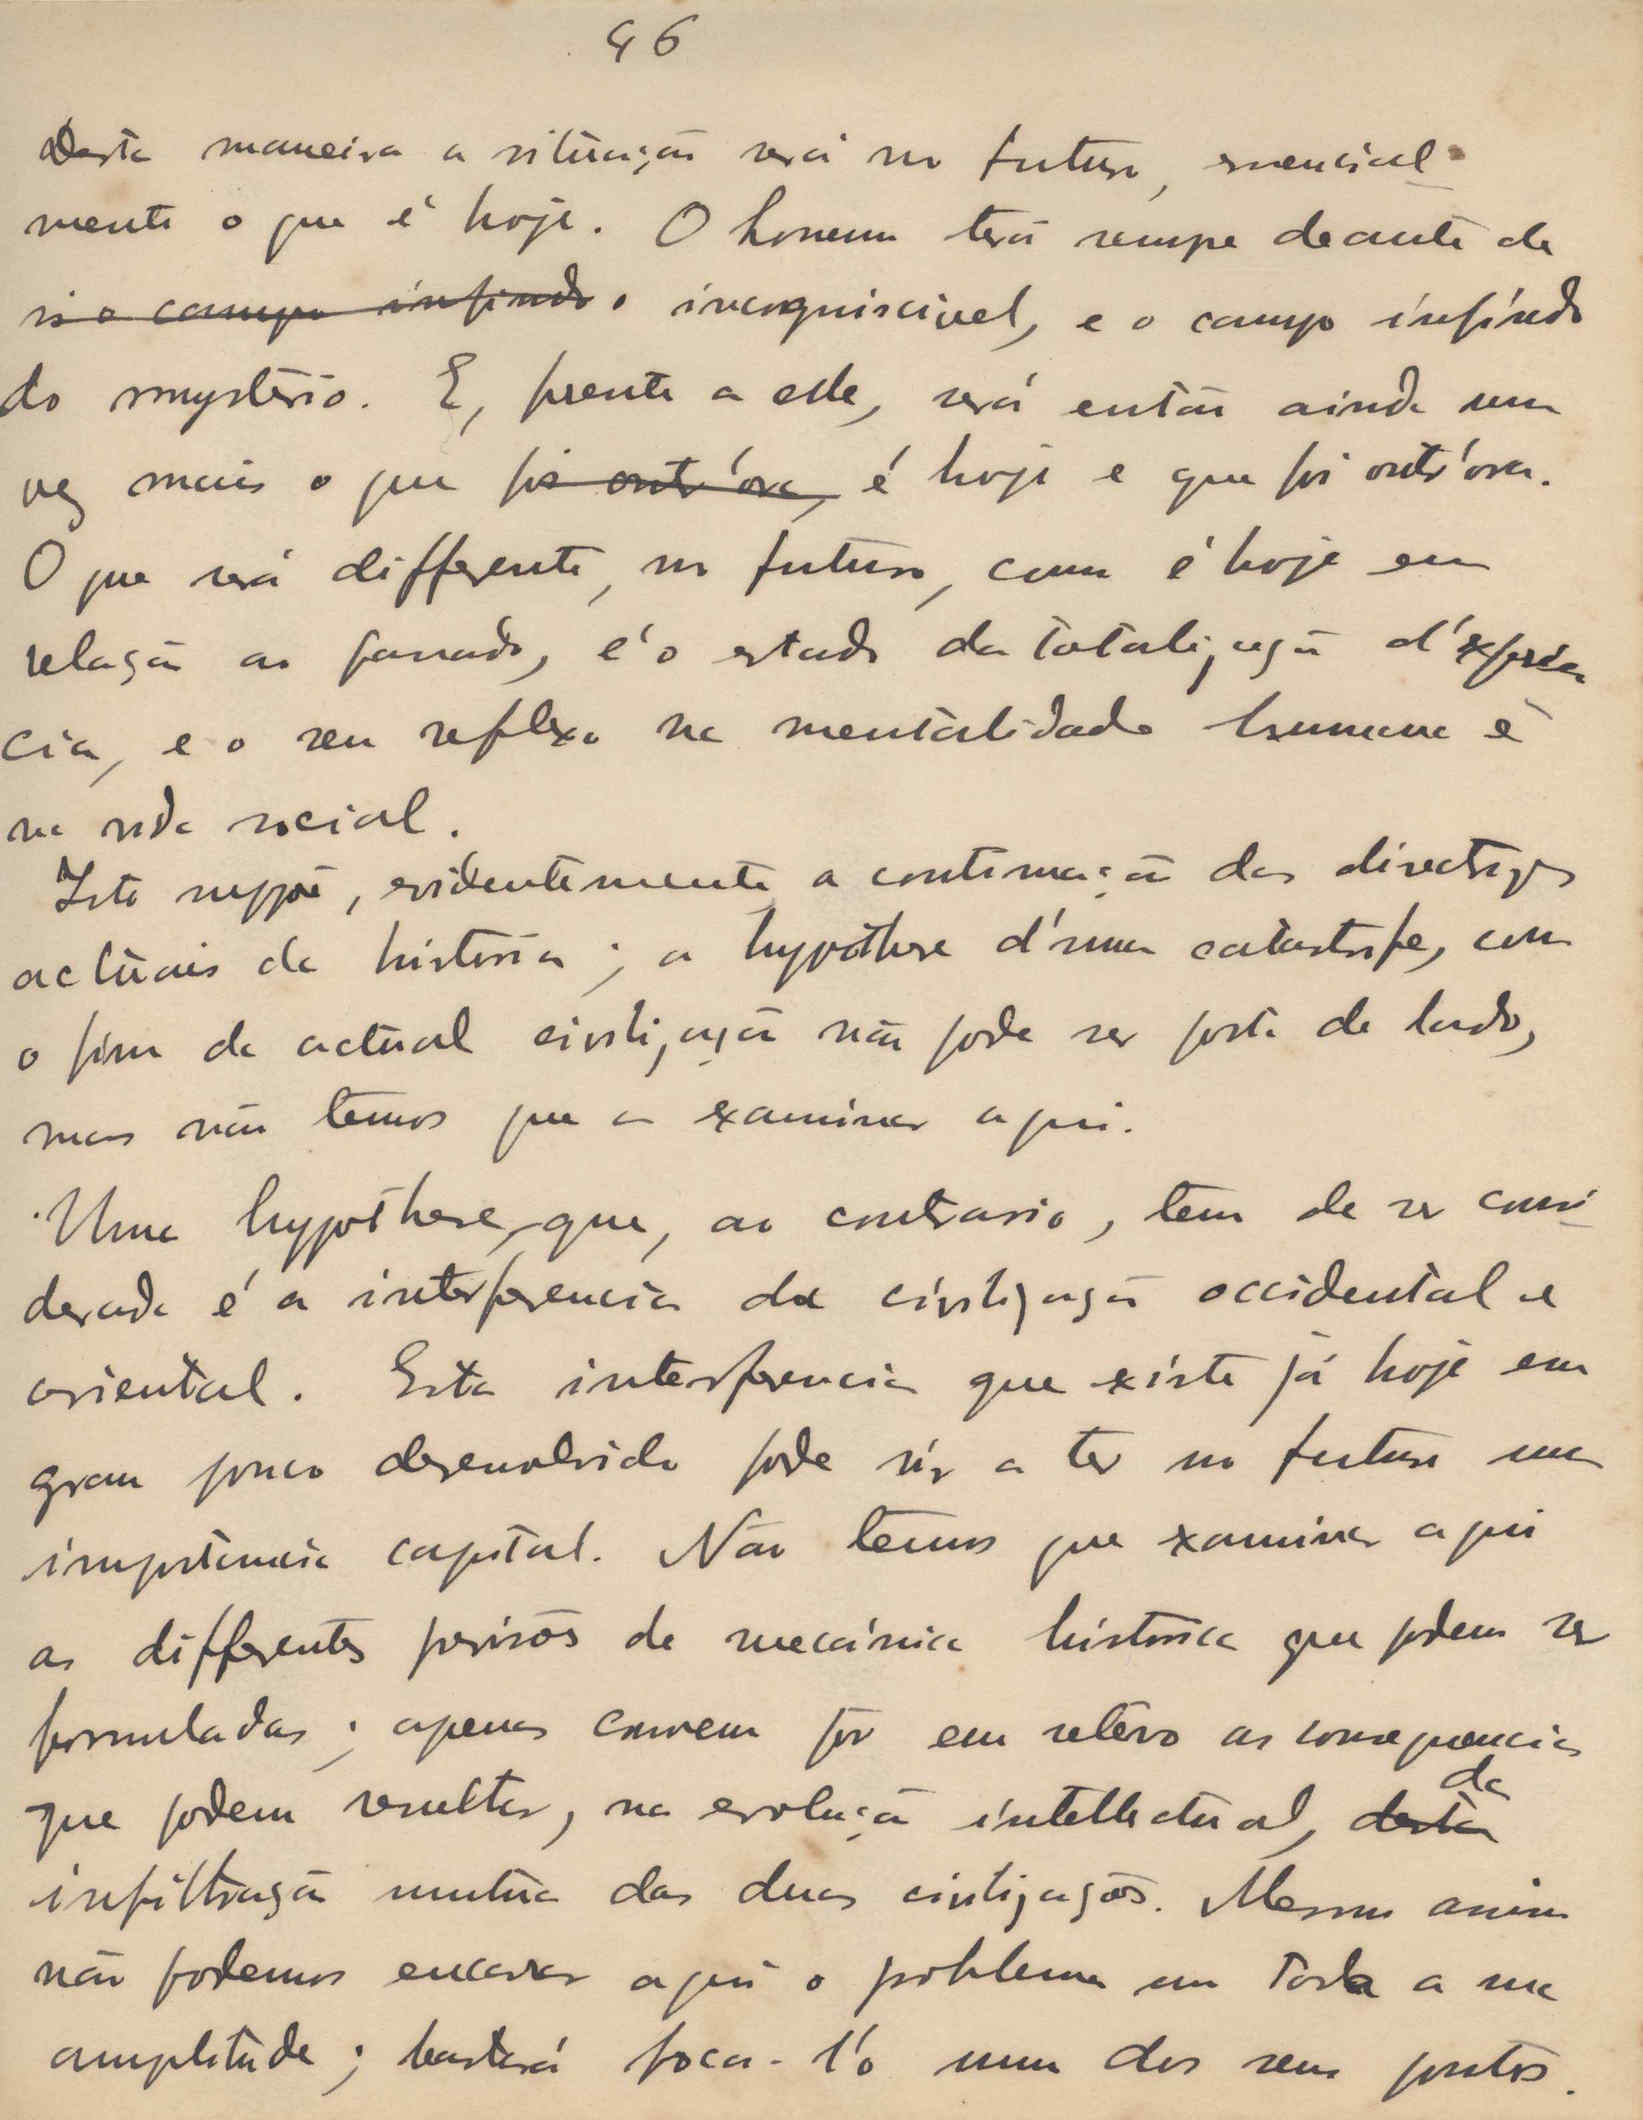 46
Desta maneira a situação será no futuro, essencial-
mente o que é hoje. O homem terá sempre deante de
si o campo infindo o incogniscivel, e o campo infindo
do mysterio. E, frente a elle, será então ainda uma
vez mais o que foi outr'ora, é hoje e que foi outr'ora.
O que será differente, no futuro, como é hoje em
relação ao passado, é o estado da totalização d'experien
cia, e o seu reflexo na mentalidade humana e
na vida social.
Isto suppõe, evidentemente a continuação das directrizes
actuais da historia; a hypothese d'uma catastrofe, com
o fim da actual civilização não pode ser posta de lado,
mas não temos que a examinar aqui.
Uma hypothese, que, ao contrario, tem de ser consi-
derada é a interferencia da civilização occidental e
oriental. Esta interferencia que existe já hoje em
grau pouco desenvolvido pode vir a ter no futuro uma
importancia capital. Não temos que examinar aqui
as differentes previsões de mecánica historica que podem ser
formuladas; apenas convem pôr em relevo as consequencias
que podem resultar, na evolução intellectual, desta da
infiltração mutua das duas civilizações. Mesmo assim
não podemos encarar aqui o problema em toda a sua
amplitude; bastará foca-l'o num dos seus pontos.